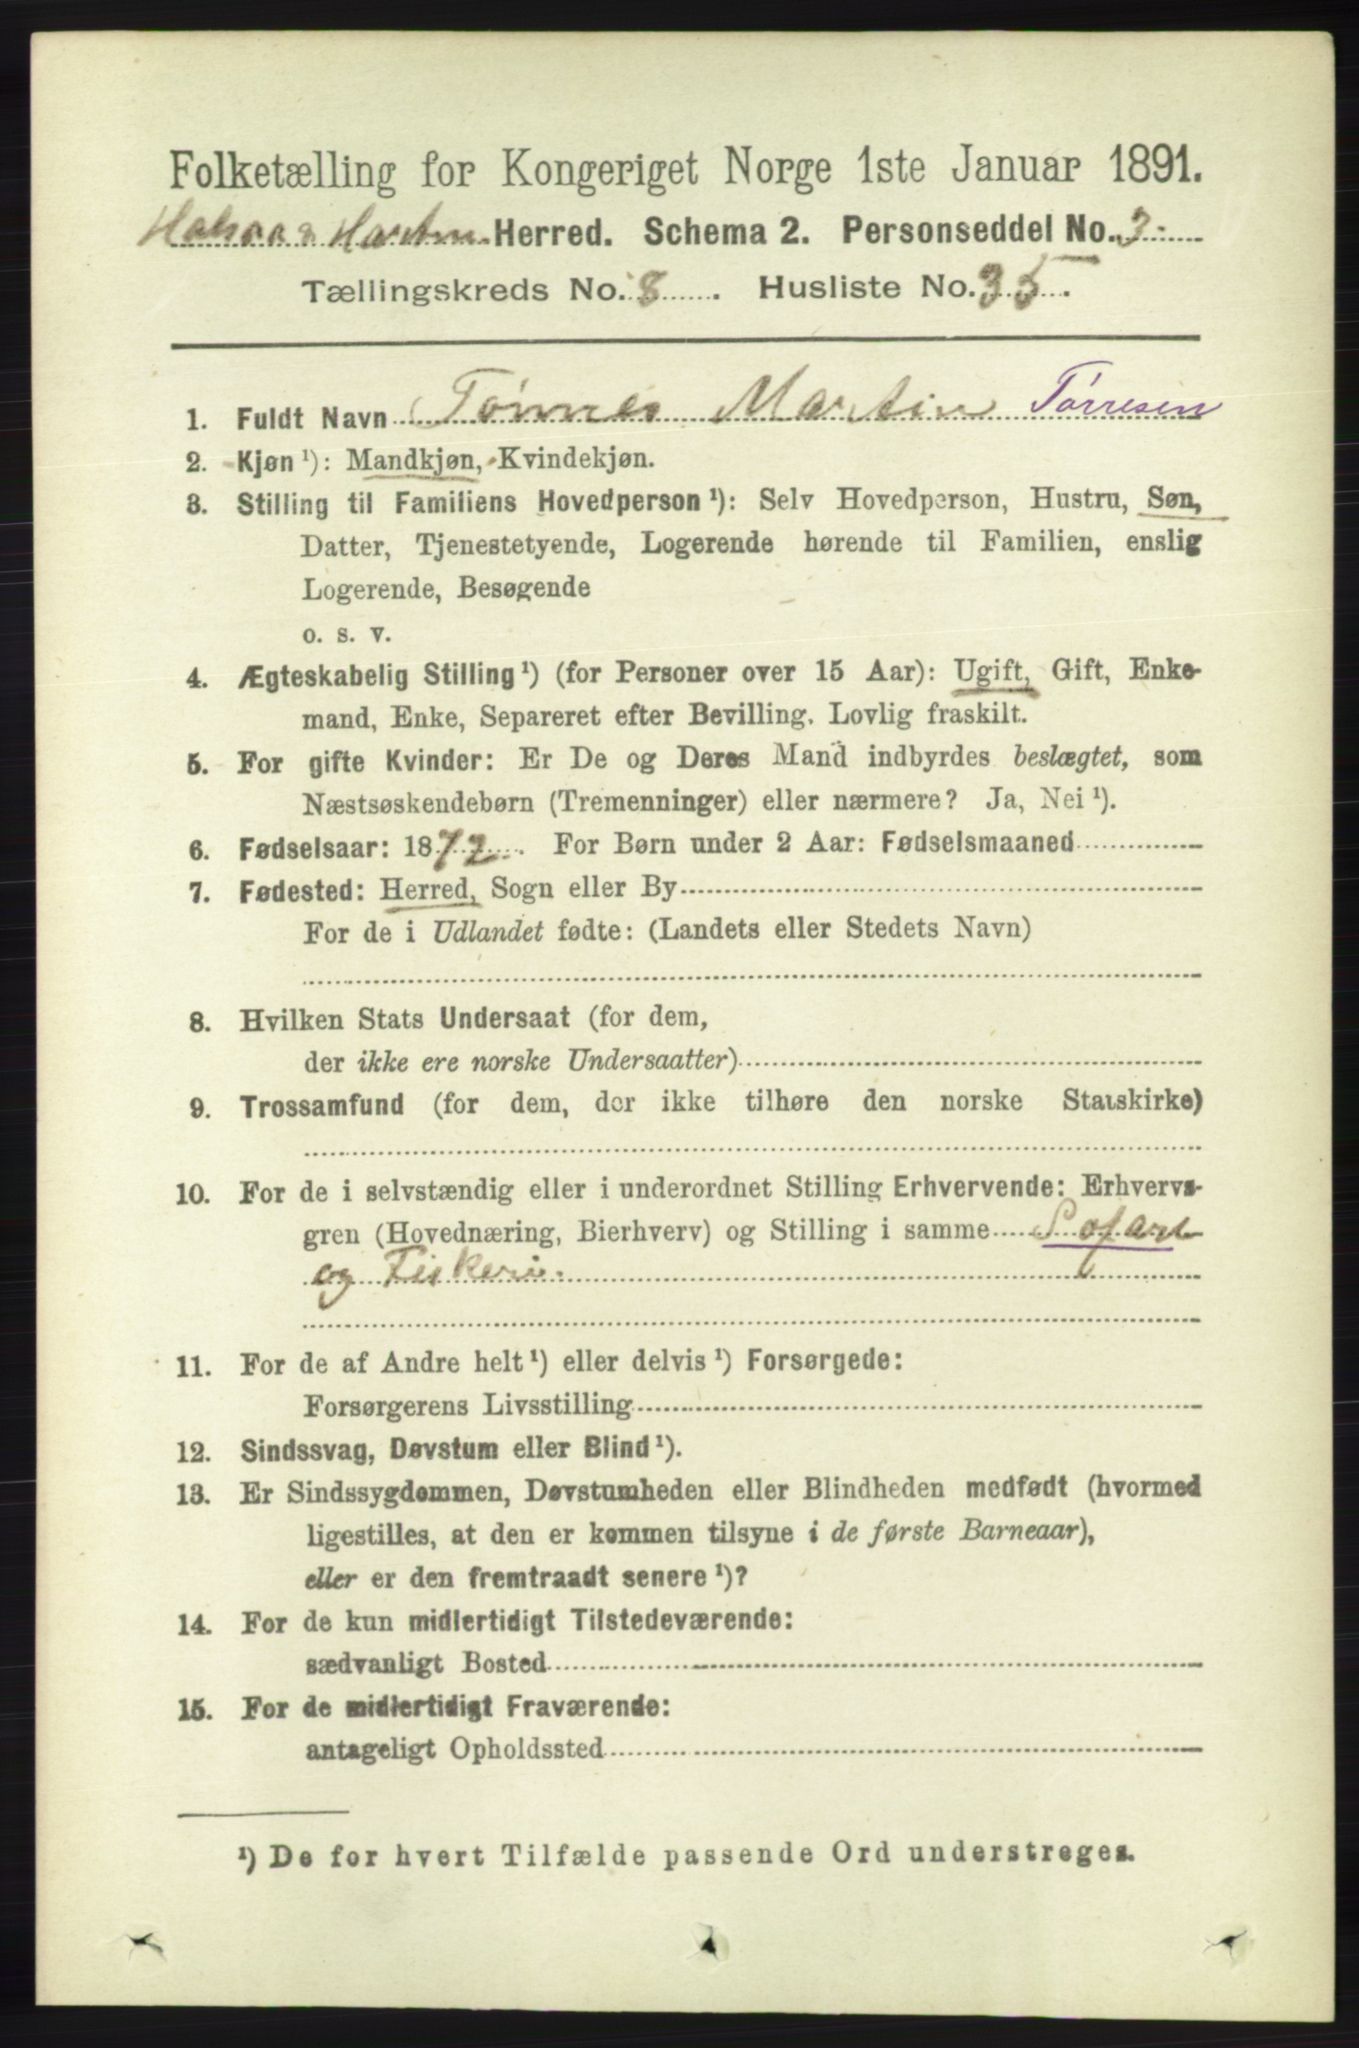 Folketælling for Kongeriget Norge 1ste Januar 1891.
Halsaa & Hartm. Herred. Schema 2. Personseddel No. 3
Tællingskreds No. 8. Husliste No. 35.
1. Fuldt Navn Tønnes Martin Tørresen
2. Kjøn ¹): Mandkjøn, Kvindekjøn.
3. Stilling til Familiens Hovedperson ¹): Selv Hovedperson, Hustru, Søn,
Datter, Tjenestetyende, Logerende hørende til Familien, enslig
Logerende, Besøgende
o. s. v.
4. Ægteskabelig Stilling ¹) (for Personer over 15 Aar): Ugift, Gift, Enke-
mand, Enke, Separeret efter Bevilling. Lovlig fraskilt.
5. For gifte Kvinder: Er De og Deres Mand indbyrdes beslægtet, som
Næstsøskendebørn (Tremenninger) eller nærmere? Ja, Nei ¹).
6. Fødselsaar: 1872. For Børn under 2 Aar: Fødselsmaaned
7. Fødested: Herred, Sogn eller By
For de i Udlandet fødte: (Landets eller Stedets Navn)
8. Hvilken Stats Undersaat (for dem,
der ikke ere norske Undersaatter)
9. Trossamfund (for dem, der ikke tilhøre den norske Statskirke)
10. For de i selvstændig eller i underordnet Stilling Erhvervende: Erhvervs-
gren (Hovednæring, Bierhverv) og Stilling i samme Søfart
og Fiskeri.
11. For de af Andre helt ¹) eller delvis ¹) Forsørgede:
Forsørgerens Livsstilling
12. Sindssvag, Døvstum eller Blind ¹).
13. Er Sindssygdommen, Døvstumheden eller Blindheden medfødt (hvormed
ligestilles, at den er kommen tilsyne i de første Barneaar),
eller er den fremtraadt senere ¹)?
14. For de kun midlertidigt Tilstedeværende:
sædvanligt Bosted
15. For de midlertidigt Fraværende:
antageligt Opholdssted
¹) De for hvert Tilfælde passende Ord understreges.